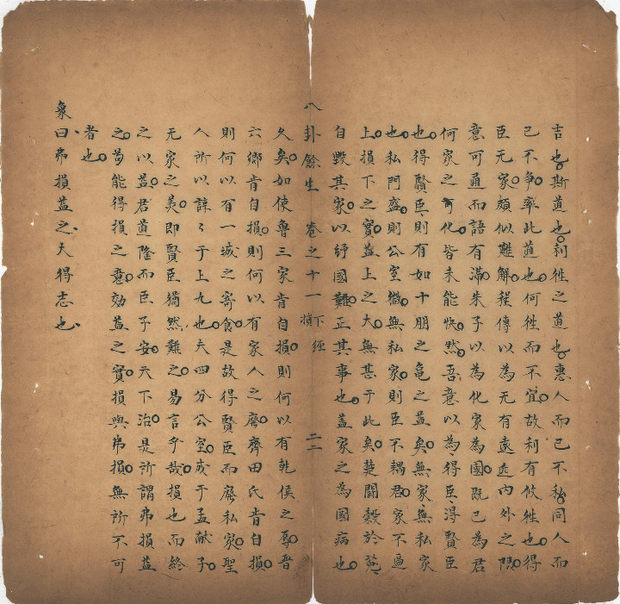 吉也斯道也利往之道也惠人而已不私同人而
已不爭率此道也何往而不宜故利有攸往也得
臣无家頗似難解程傳以為无有遠近內外之限
意可通而語有滯朱子以為化家為國既已為君
何家之可化皆未能快然吾意以為得臣得賢臣
也得賢臣則有如十朋之龜之益矣無家無私家
也私門盛則公室微無私家則臣不耦君家不逼
上損下之實益上之大無甚于此矣楚鬬穀於菟
自毀其家以紓國難正其事也蓋家之為國病也
八卦餘生 卷之十一 下經 損 二二
久矣如使魯三家肯自損則何以有乾侯之辱晉
六鄉肯自損則何以有家人之廢齊田氏肯自損
則何以有一城之寄食是故得賢臣而廢私家聖
人所以諄〻于上九也夫四分公室或于孟獻子
无家之美即賢臣猶然難之易言乎哉損也而終
之以益君道隆而臣子安天下治是所謂弗損益
之苟能得損之意効益之實損與弗損無所不可
者也
象曰弗損益之大得志也